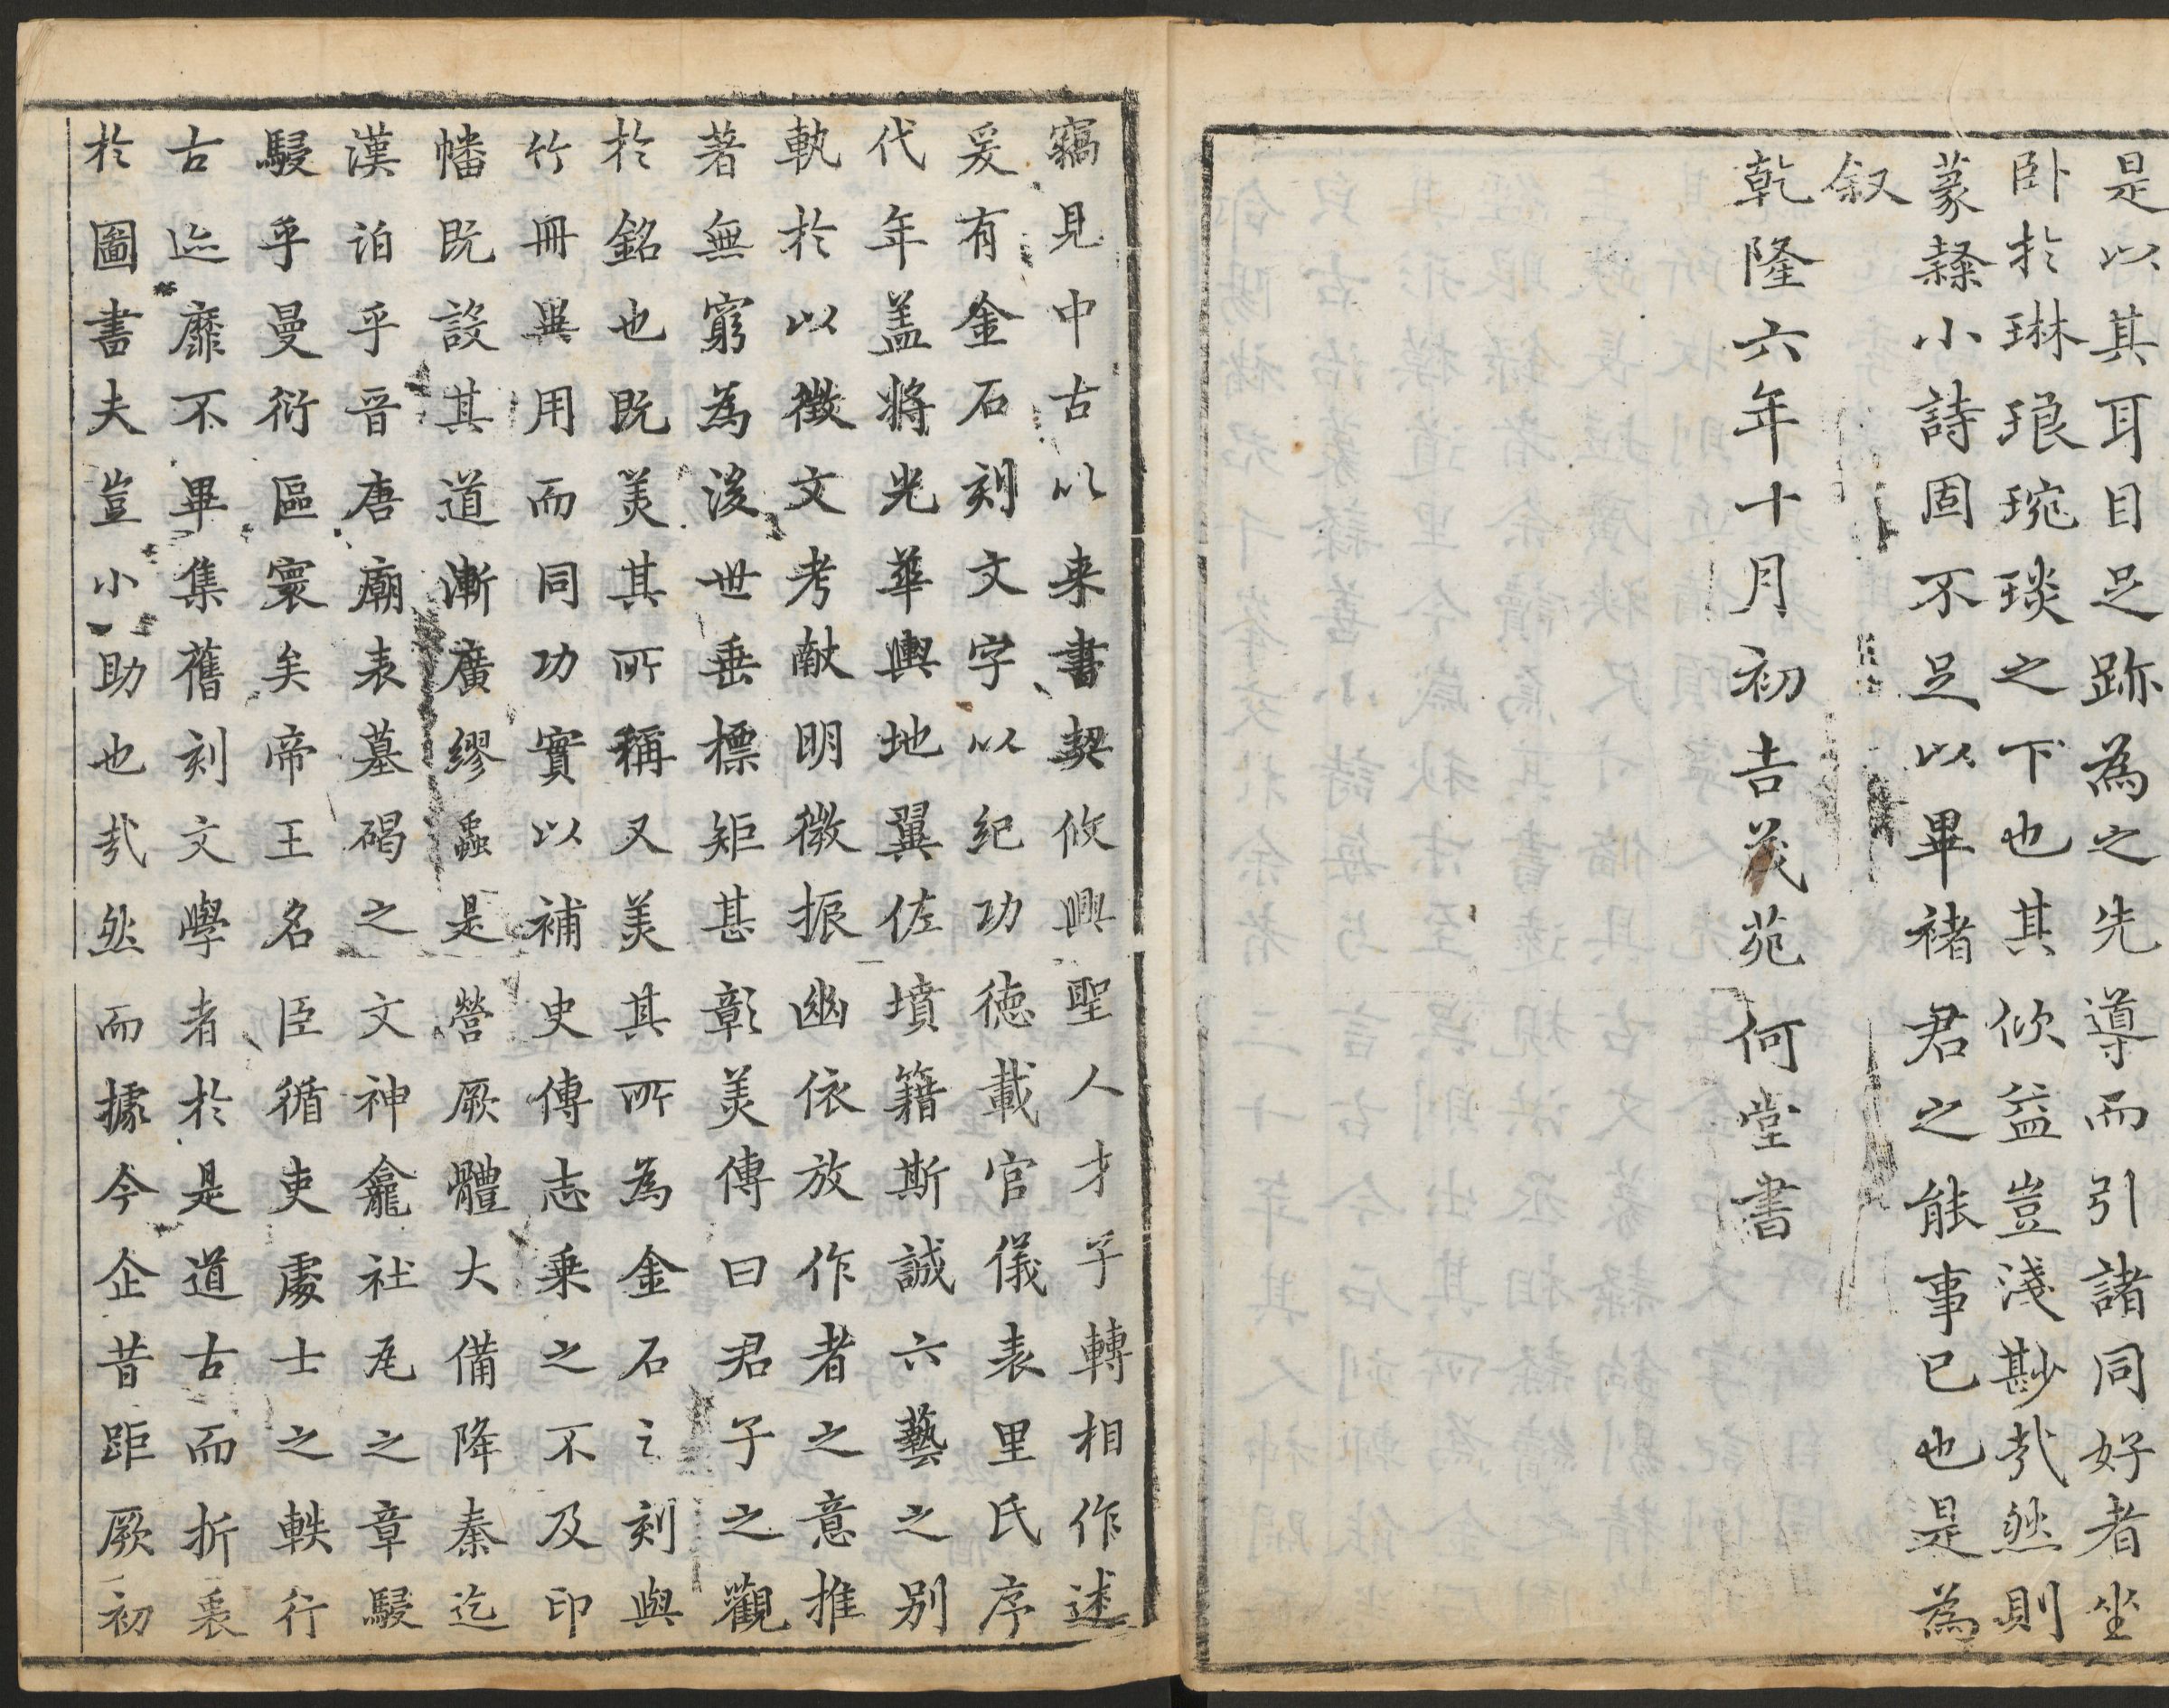 是以其耳目足跡為之先導而引諸同好者坐
臥於琳琅琬琰之下也其俽益豈淺尠㢤然則
篆隸小詩固不足以畢褚君之能事已也是為
叙
乾隆六年十月初吉茂苑何堂書
竊見中古以来書契攸興聖人才子轉相作述
爰有金石刻文字以紀功德載官儀表里氏序
代年盖將光華輿地翼佐墳籍斯誠六藝之別
執於以徵文考獻明微振幽依放作者之意推
著無窮為後世垂標矩甚彰美傳曰君子之觀
於銘也既美其所稱又美其所為金石之刻與
竹冊異用而同功實以補史傳志乘之不及印
幡既設其道漸廣繆蟲是營厥體大備降秦迄
漢洎乎晉唐廟表墓碣之文神龕社㡳之章駸
駸乎曼衍區寰矣帝王名臣循吏處士之軼行
古迹靡不畢集舊刻文學者於是道古而折衷
於圖書夫豈小助也㢤然而據今企昔距厥初